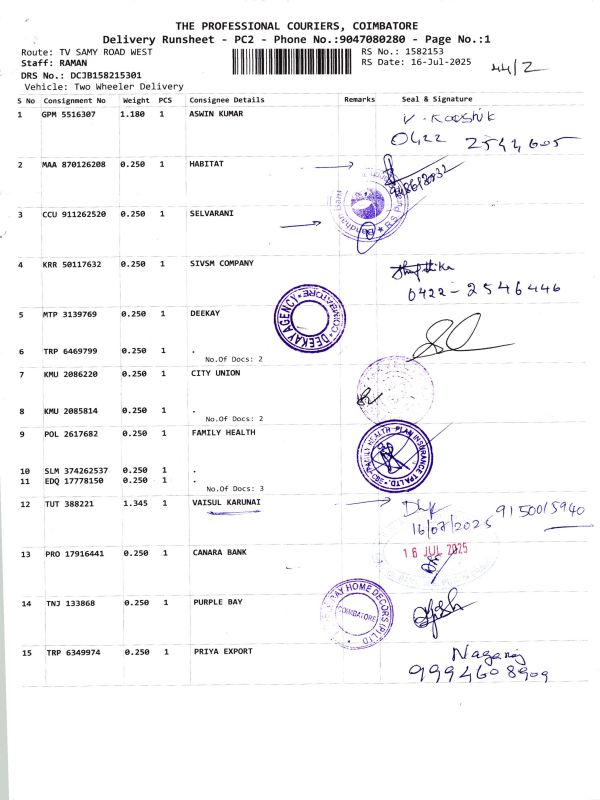 THE PROFESSIONAL COURIERS, COIMBATORE
Delivery Runsheet - PC2 - Phone No.:9047080280 - Page No.:1
Route: TV SAMY ROAD WEST RS No.: 1582153
Staff: RAMAN RS Date: 16-Jul-2025 44/2
DRS No.: DCJB158215301
Vehicle: Two Wheeler Delivery
S No Consignment No Weight PCS Consignee Details Remarks Seal & Signature
1 GPM 5516307 1.180 1 ASWIN KUMAR V. Kooshik
0422 2544605
2 MAA 870126208 0.250 1 HABITAT
3 CCU 911262520 0.250 1 SELVARANI
4 KRR 50117632 0.250 1 SIVSM COMPANY
0422-2546446
5 MTP 3139769 0.250 1 DEEKAY DEEKAY AGENCY COIMBATORE
6 TRP 6469799 0.250 1 .
No.Of Docs: 2
7 KMU 2086220 0.250 1 CITY UNION
8 KMU 2085814 0.250 1 .
No.Of Docs: 2
9 POL 2617682 0.250 1 FAMILY HEALTH FAMILY HEALTH PLAN INSURANCE TPA LTD
10 SLM 374262537 0.250 1 .
11 EDQ 17778150 0.250 1 .
No.Of Docs: 3
12 TUT 388221 1.345 1 VAISUL KARUNAI 9150015940
16/07/2025
13 PRO 17916441 0.250 1 CANARA BANK 16 JUL 2025
14 TNJ 133868 0.250 1 PURPLE BAY BAY HOME DECORS (P) LTD COIMBATORE
15 TRP 6349974 0.250 1 PRIYA EXPORT Nagaraj
9994608909